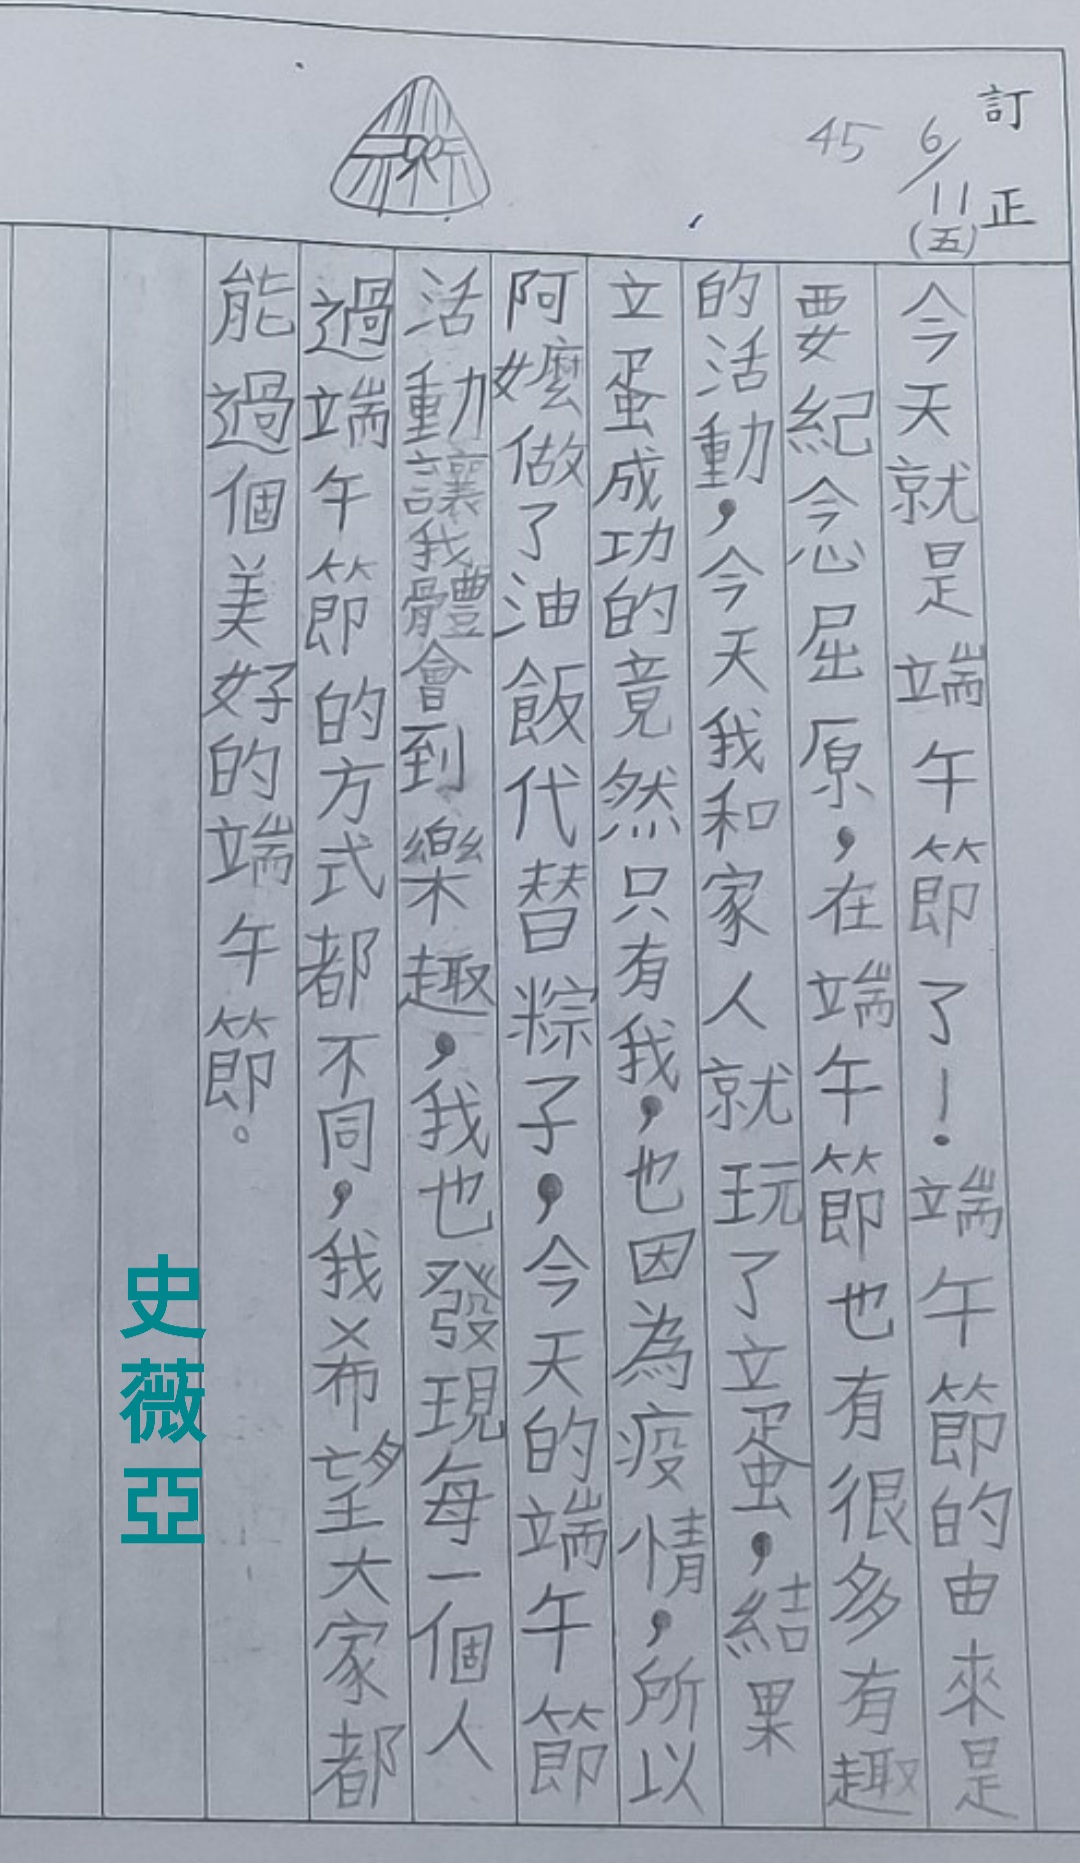 訂正
6/11(五)
45
今天就是端午節了！端午節的由來是
要紀念屈原，在端午節也有很多有趣
的活動，今天我和家人就玩了立蛋，結果
立蛋成功的竟然只有我，也因為疫情，所以
阿嬤做了油飯代替粽子，今天的端午節
活動讓我體會到樂趣，我也發現每一個人
過端午節的方式都不同，我希望大家都
能過個美好的端午節。
史薇亞